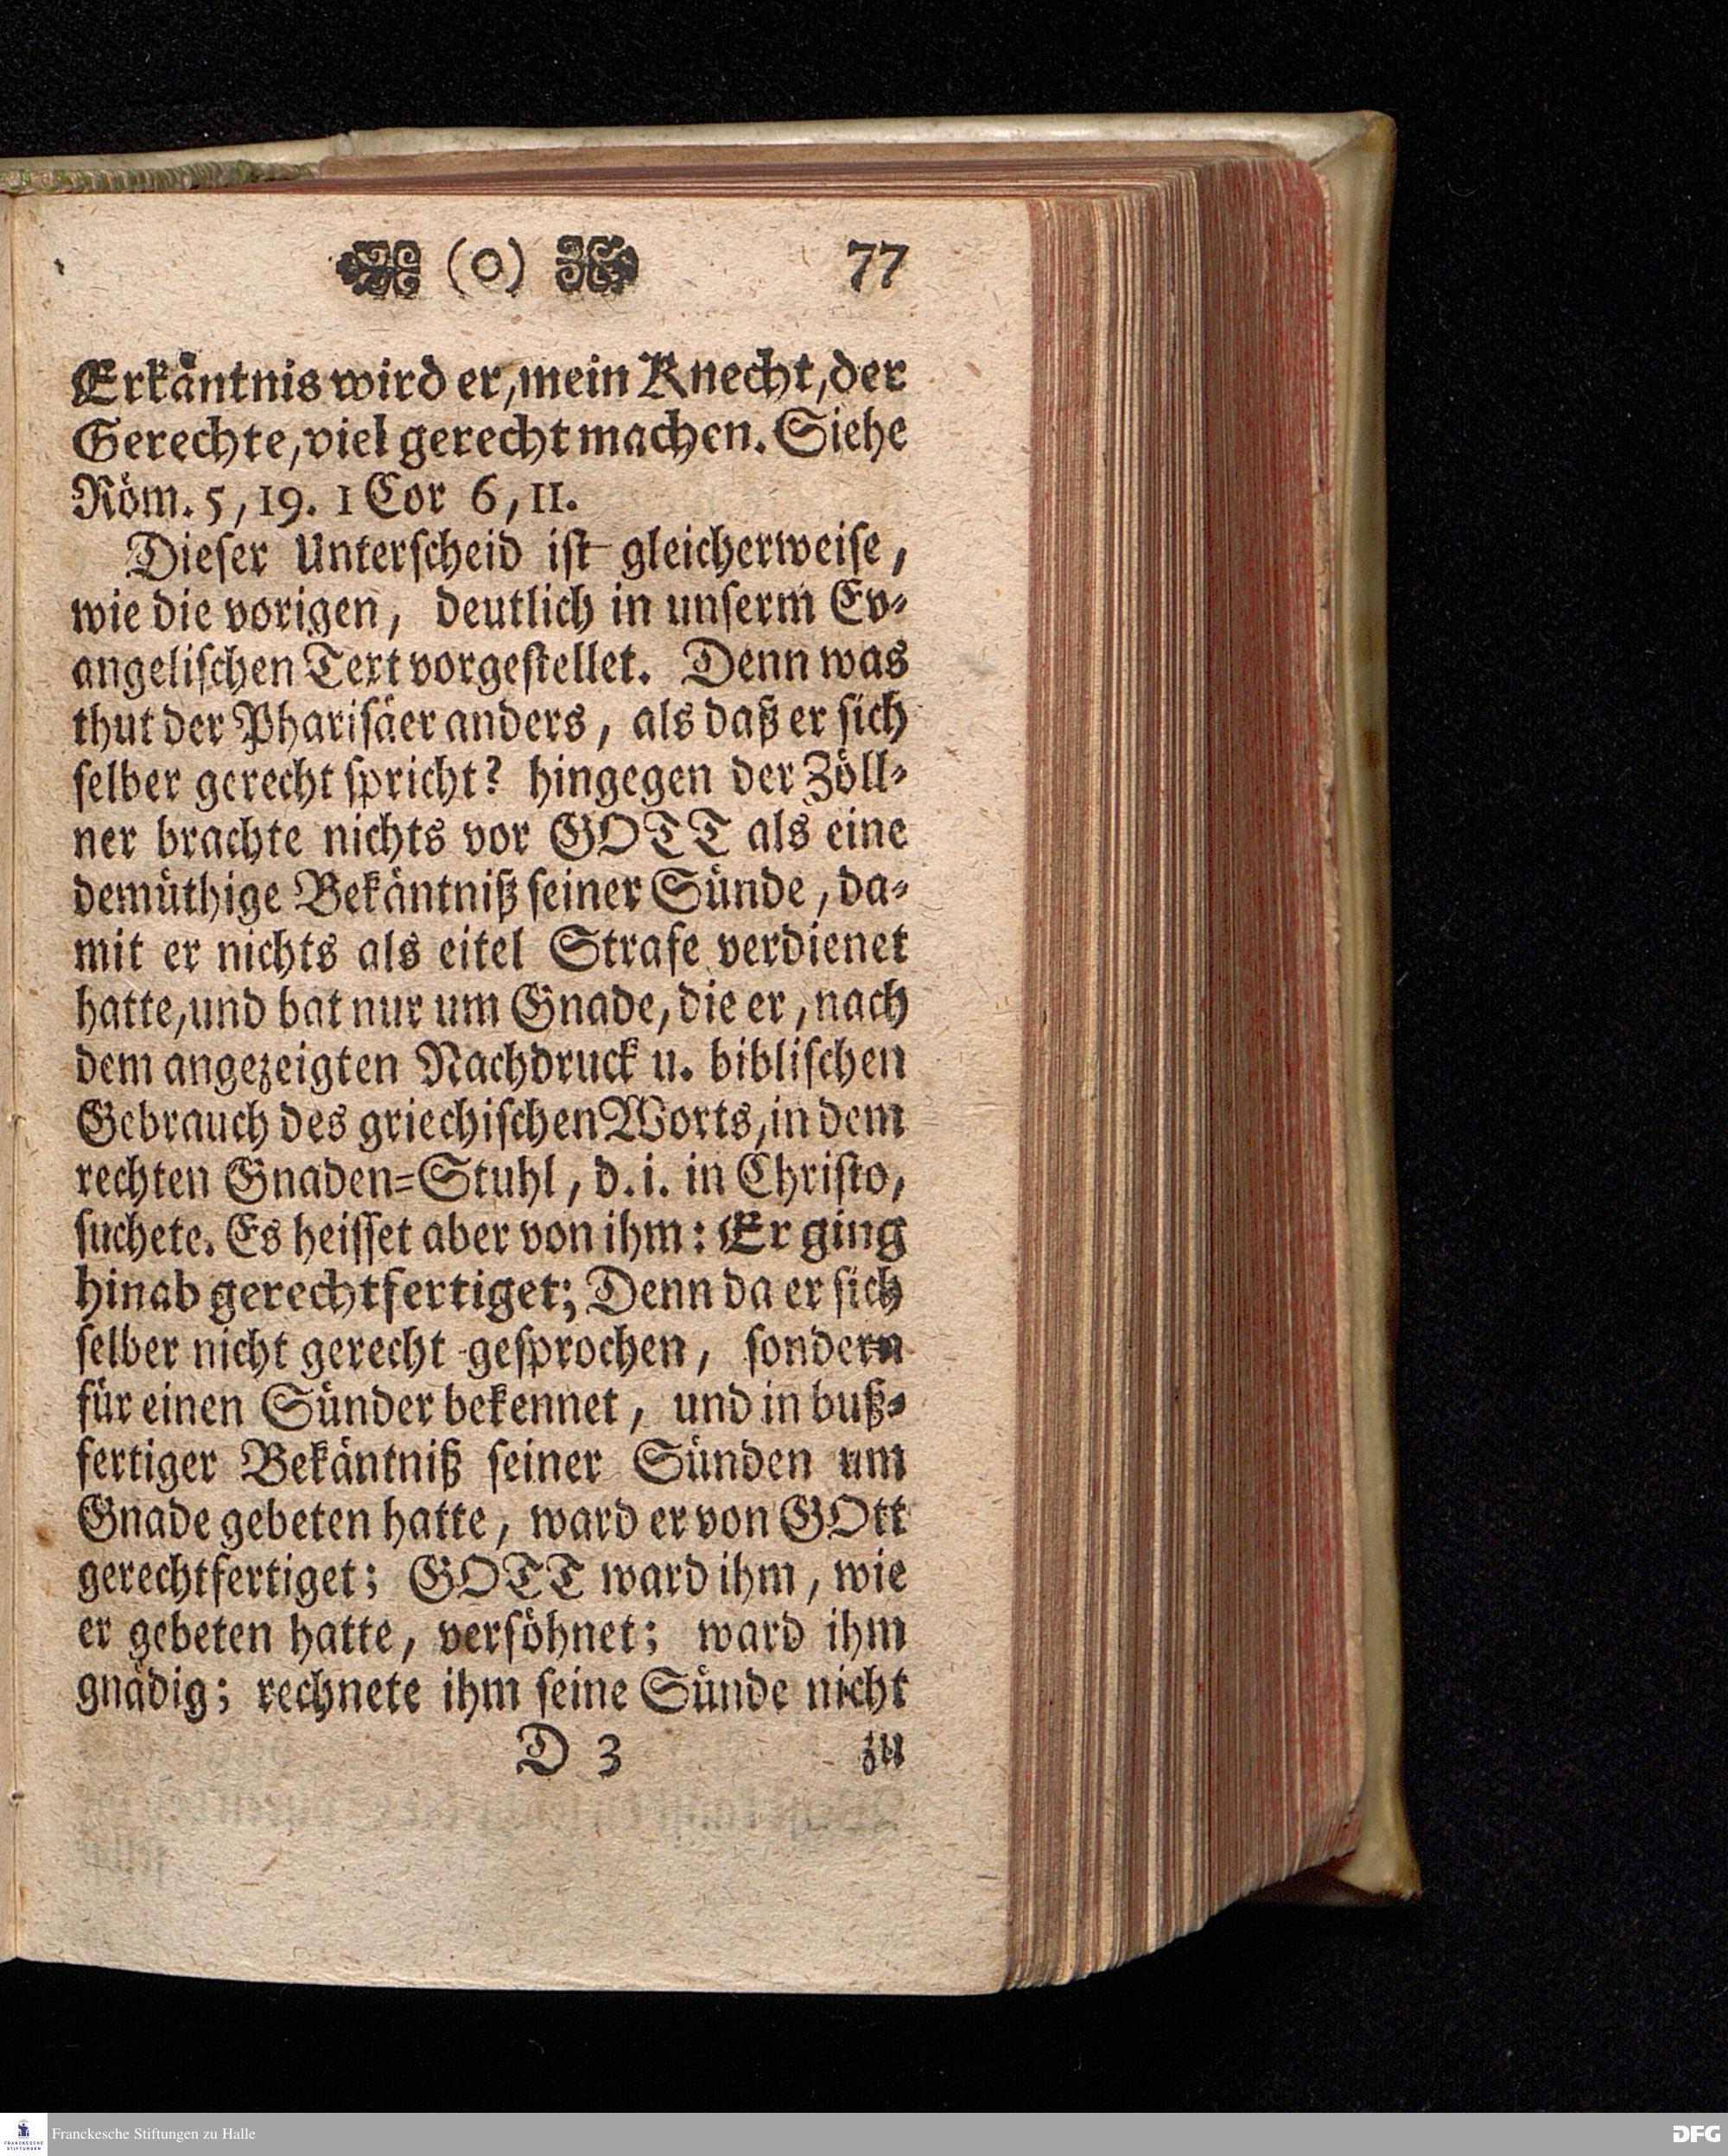 (o) 77
Erkäntnis wird er, mein Knecht, der
Gerechte, viel gerecht machen. Siehe
Röm. 5, 19. 1 Cor 6, 11.
Dieſer Unterſcheid iſt gleicherweiſe,
wie die vorigen, deutlich in unſerm Ev-
angeliſchen Text vorgeſtellet. Denn was
thut der Phariſäer anders, als daß er ſich
ſelber gerecht ſpricht? hingegen der Zöll-
ner brachte nichts vor GOTT als eine
demüthige Bekäntniß ſeiner Sünde, da-
mit er nichts als eitel Strafe verdienet
hatte, und bat nur um Gnade, die er, nach
dem angezeigten Nachdruck u. bibliſchen
Gebrauch des griechiſchen Worts, in dem
rechten Gnaden-Stuhl, d. i. in Chriſto,
ſuchete. Es heiſſet aber von ihm: Er ging
hinab gerechtfertiget; Denn da er ſich
ſelber nicht gerecht geſprochen, ſondern
für einen Sünder bekennet, und in buß-
fertiger Bekäntniß ſeiner Sünden um
Gnade gebeten hatte, ward er von GOtt
gerechtfertiget; GOTT ward ihm, wie
er gebeten hatte, verſöhnet; ward ihm
gnädig; rechnete ihm ſeine Sünde nicht
D 3 zu
FRANCKESCHE
STIFTUNGEN
Franckesche Stiftungen zu Halle
DFG